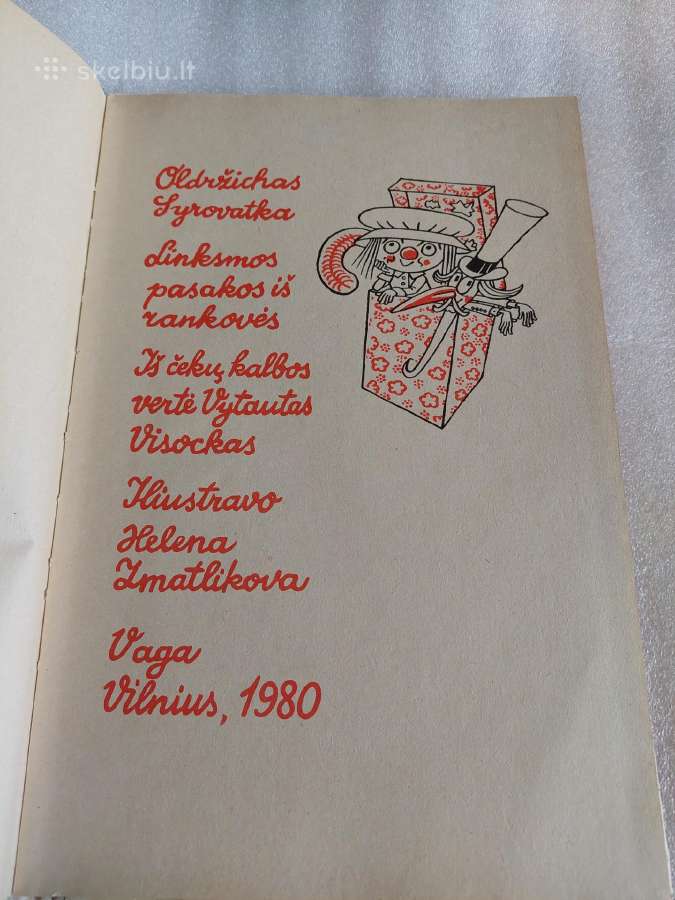 skelbiu.lt
Oldržichas
Syrovatka
Linksmos
pasakos iš
rankovės
Iš čekų kalbos
vertė Vytautas
Visockas
Iliustravo
Helena
Zmatlikova
Vaga
Vilnius, 1980